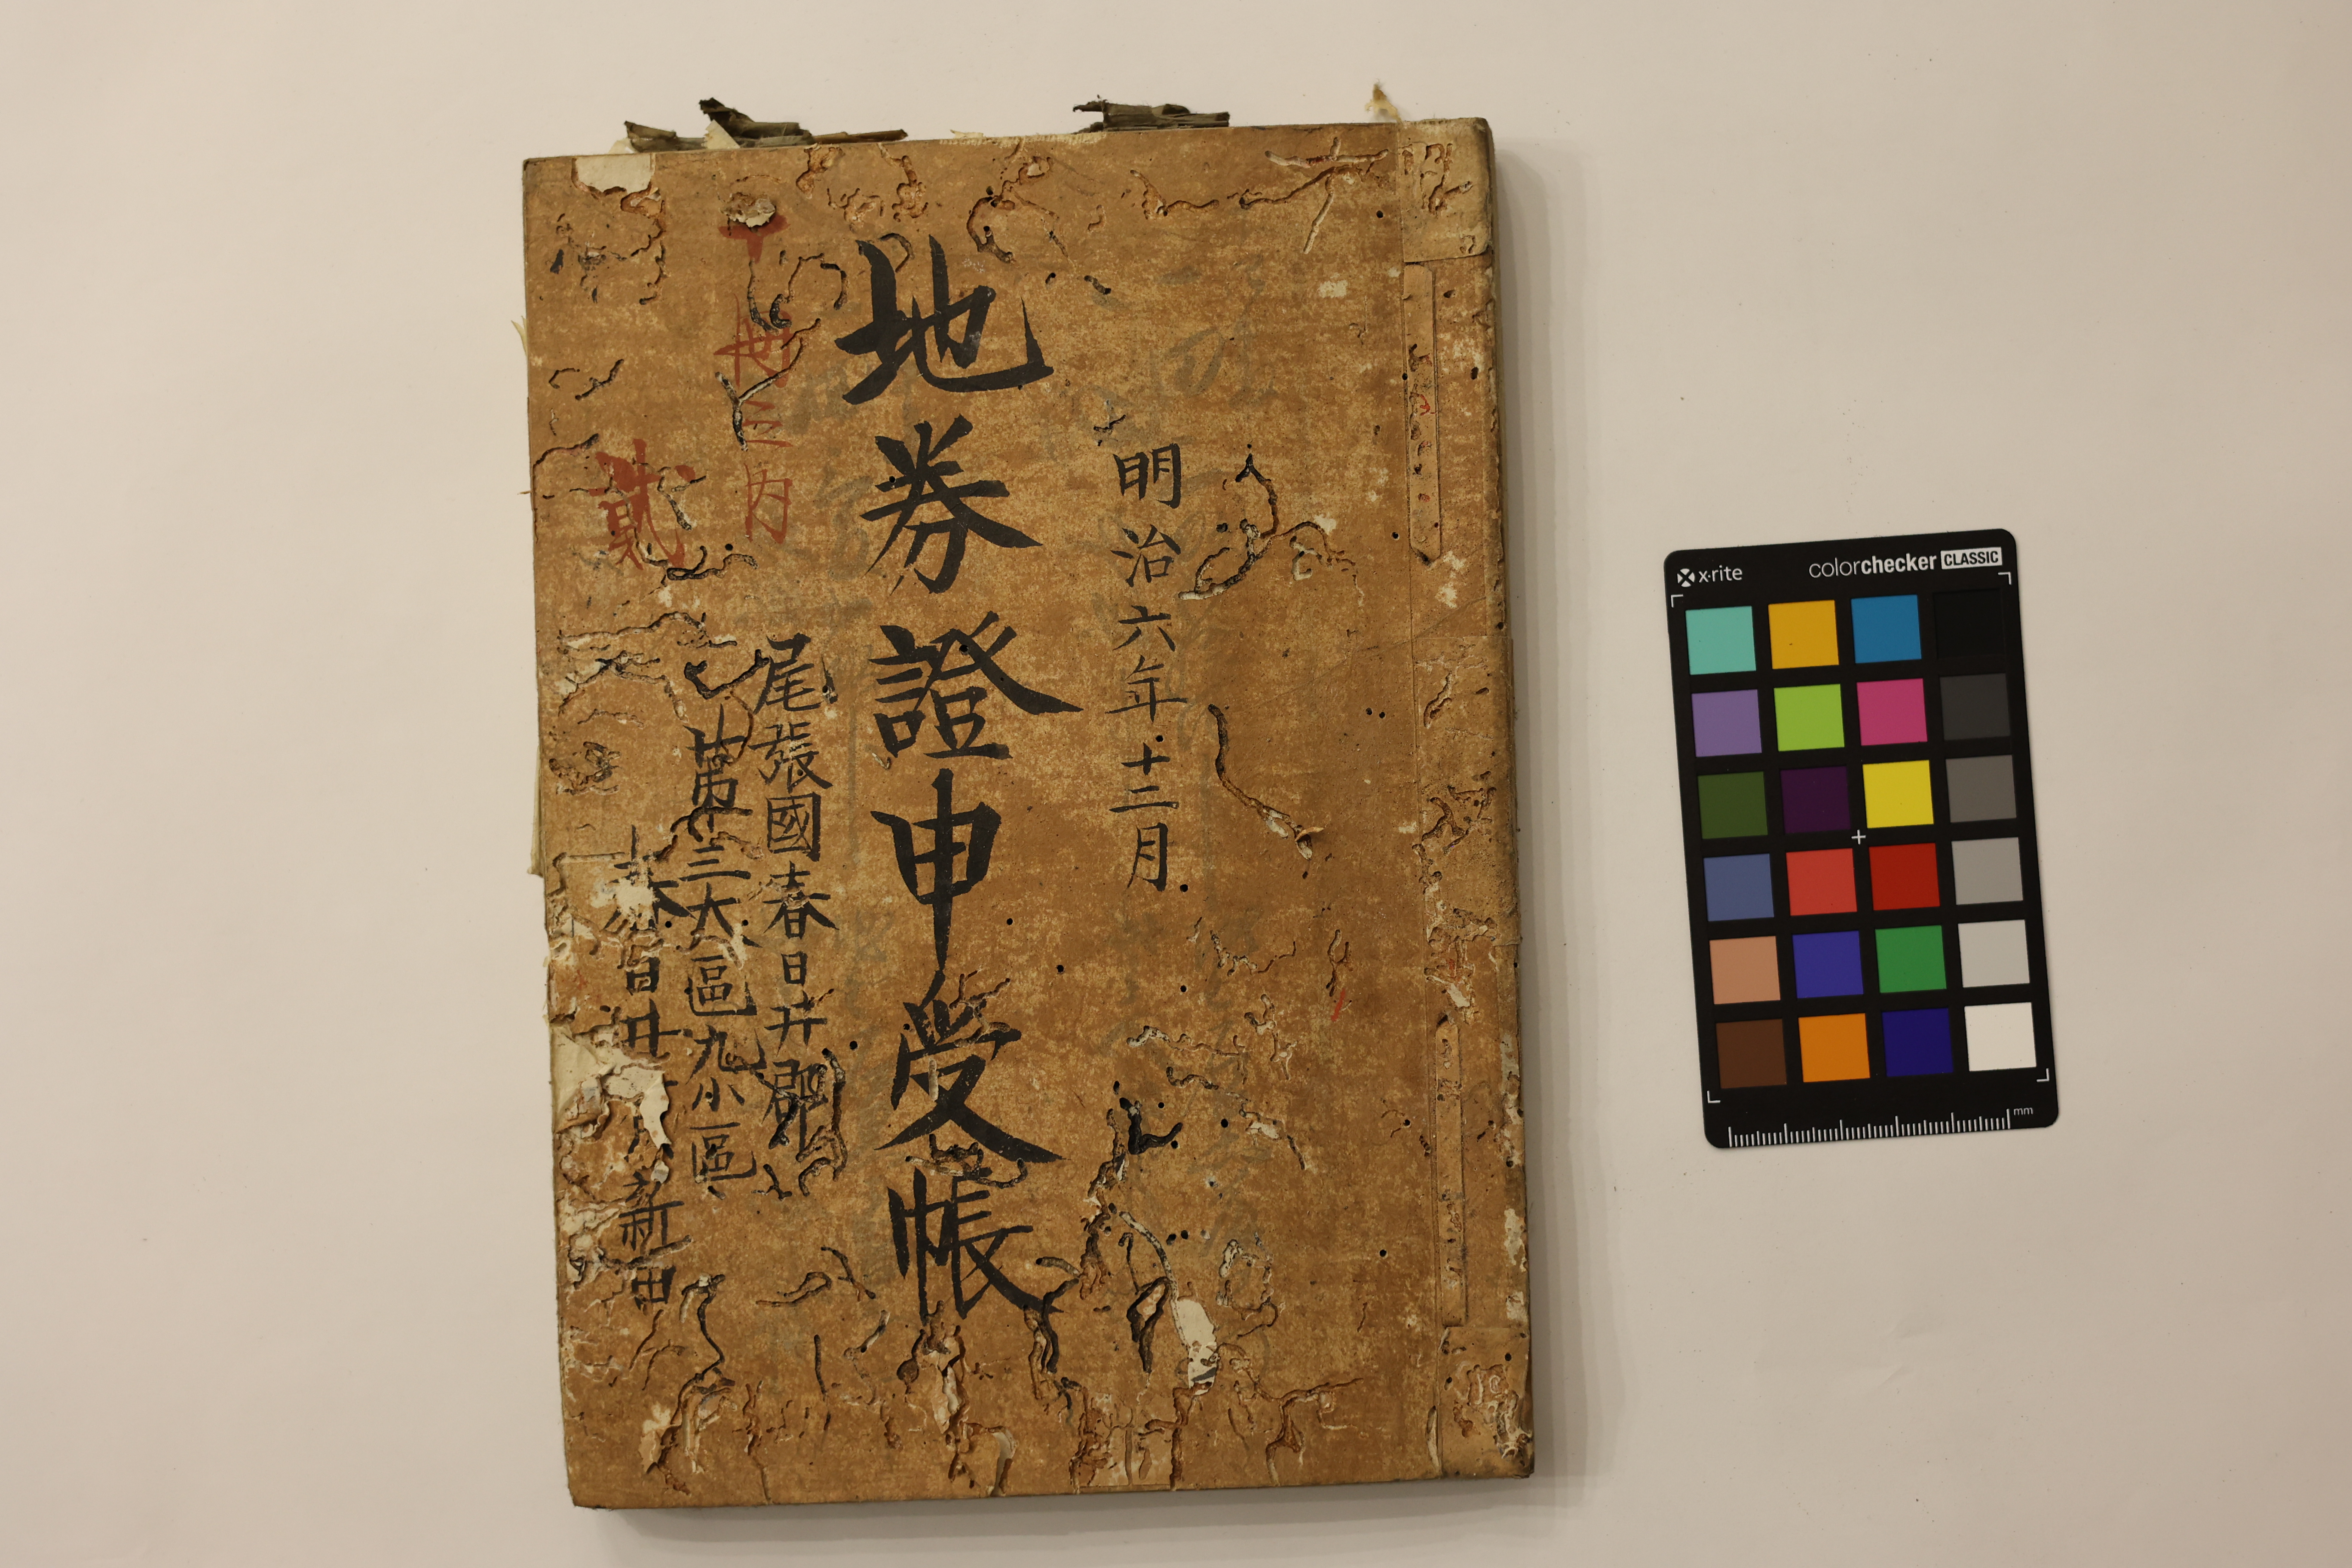 明治六年十二月
地券證申受帳
尾張國春日井郡
第三大區九小區
春日井 新田
世三内
貳
x·rite
colorchecker CLASSIC
mm